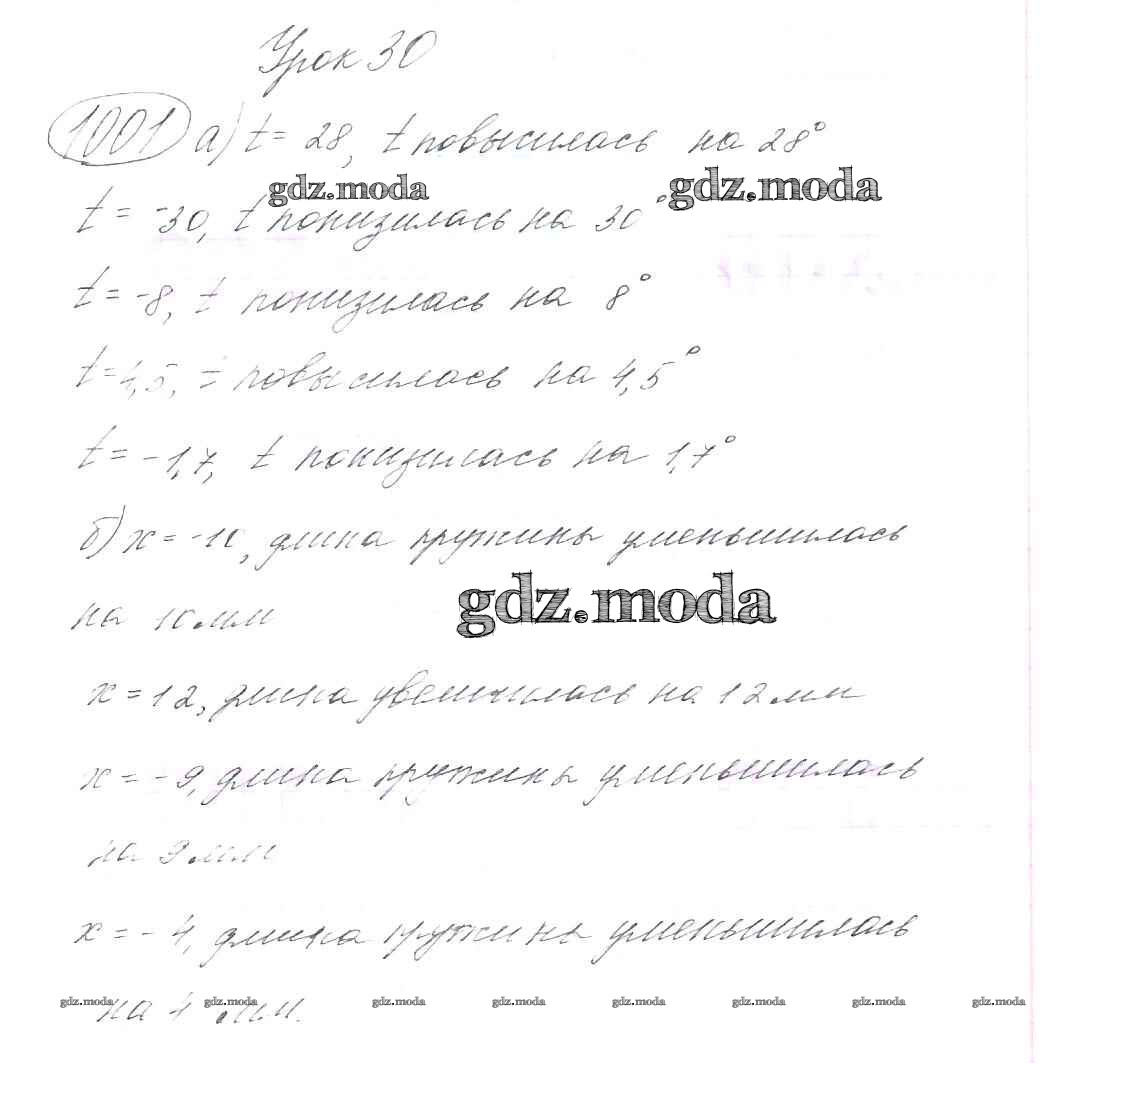 Урок 30
1001 а) t = 28, t повысилась на 28°
gdz.moda gdz.moda
t = -30, t понизилась на 30°
t = -8, t понизилась на 8°
t = 4,5, t повысилась на 4,5°
t = -1,7, t понизилась на 1,7°
б) x = -10, длина пружины уменьшилась
gdz.moda
на 10 мм
x = 12, длина увеличилась на 12 мм
x = -9, длина пружины уменьшилась
на 9 мм
x = -4, длина пружины уменьшилась
gdz.moda gdz.moda gdz.moda gdz.moda gdz.moda gdz.moda gdz.moda gdz.moda
на 4 мм.